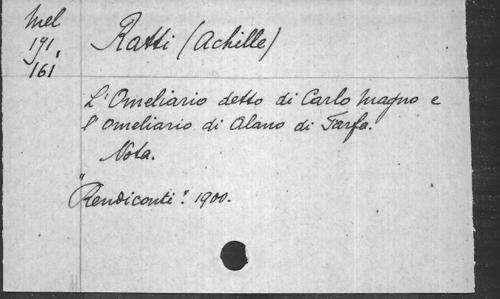 Mel
171,
161
Ratti (Achille)
L'Omeliario detto di Carlo Magno e
l'omeliario di Alano di Farfa.
Nota.
"Rendiconti". 1900.